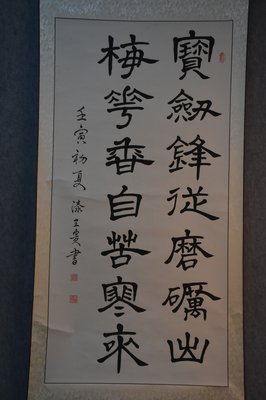 寶劔鋒從磨礪出
梅花香自苦寒來
壬寅初夏